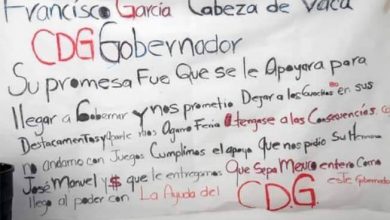 Francisco García Cabeza de Vaca
CDG Gobernador
Su promesa Fue Que se le Apoyara para
llegar a Gobernar y nos prometio Dejar a los Guachos en sus
Destacamentos y Darle mos Agarro Feria Atengase a las Consecuencias.
no andamo con Juegos Cumplimos el apoyo que nos pidio Su Hermano
José Manuel y $ que le entregamos Que Sepa Mexico entero Como
llego al poder con La Ayuda del C.D.G. este Gobernador